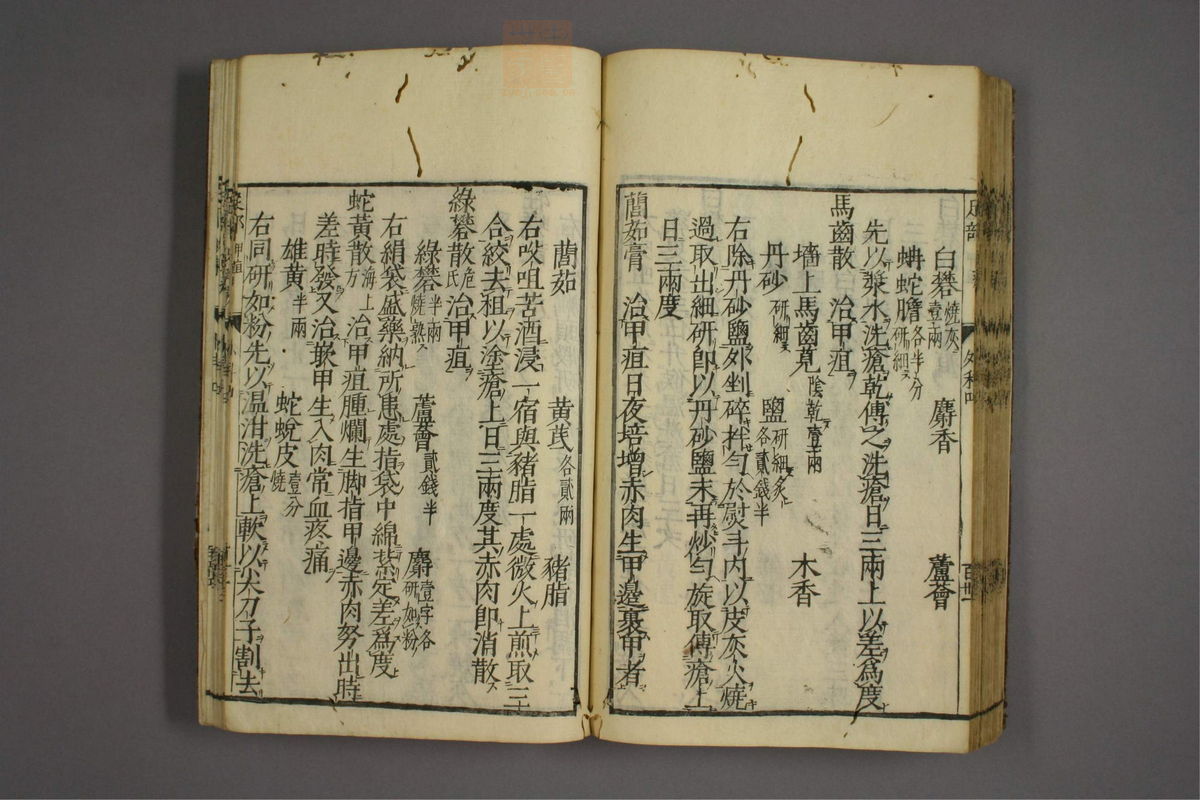 白礬燒灰壹兩 麝香 蘆薈
蚺蛇膽各半分研細
先以漿水洗瘡乾傅之洗瘡日三兩上以差為度
馬齒散 治甲疽
墻上馬齒莧陰乾壹兩 木香
丹砂研細 鹽研細炙各貳錢半
右除丹砂鹽外剉碎拌勻於熨斗內以皮灰火燒
過取出細研即以丹砂鹽末再炒勻旋取傅瘡上
日三兩度
藺茹膏 治甲疽日夜培增赤肉生甲邊裹甲者
藺茹 黃芪各貳兩 豬脂
右㕮咀苦酒浸一宿與豬脂一處微火上煎取三
合絞去柤以塗瘡上日三兩度其赤肉即消散
綠礬散危氏 治甲疽
綠礬半兩燒熟 蘆薈貳錢半 麝壹字各研如粉
右絹袋盛藥納所患處指袋中綿紮定差為度
蛇黃散海上方 治甲疽腫爛生脚指甲邊赤肉努出時
差時發又治嵌甲生入肉常血疼痛
雄黃半兩 蛇蛻皮壹分燒
右同研如粉先以温泔洗瘡上軟以尖刀子割去